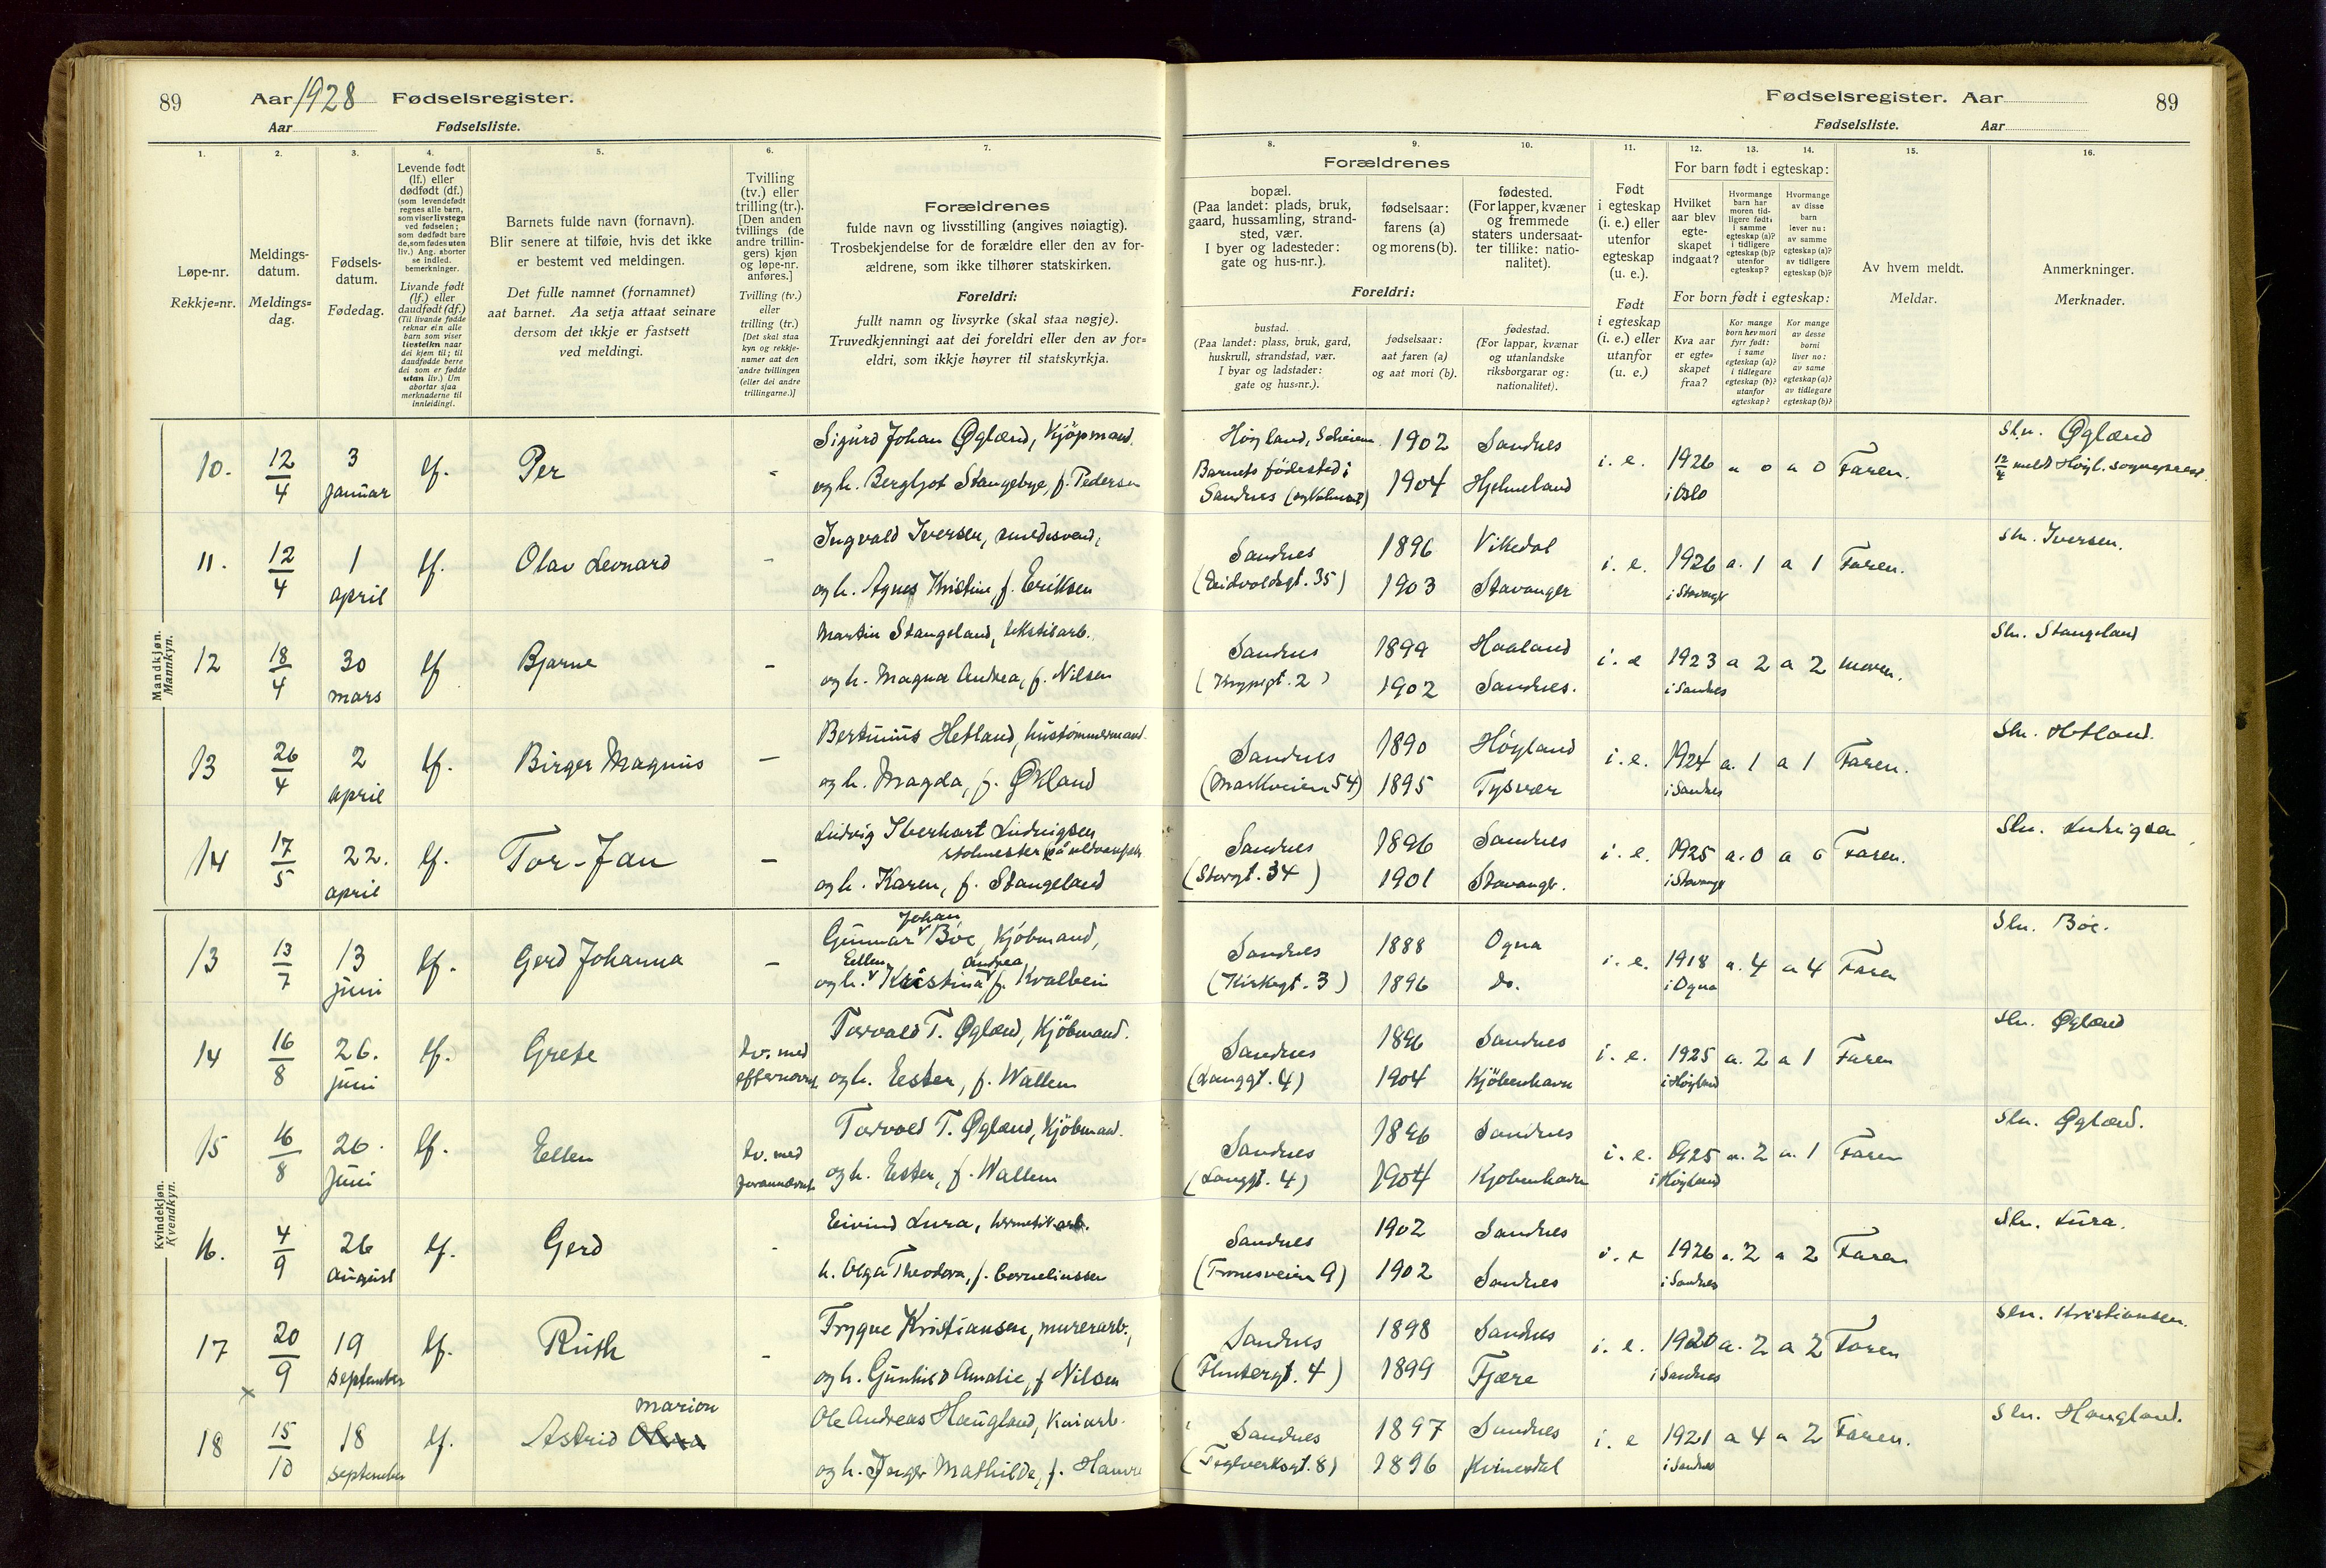 89 Aar 1928 Fødselsregister.
Aar Fødselsliste.
Fødselsregister. Aar 89
Fødselsliste. Aar
1. 2. 3. 4. 5. 6. 7. 8. 9. 10. 11. 12. 13. 14. 15. 16.
Løpe-nr.
Rekkje=nr.
Meldings-
datum.
Meldings=
dag.
Fødsels-
datum.
Fødedag.
Levende født
(lf.) eller
dødfødt (df.)
(som levendefødt
regnes alle barn,
som viser livstegn
ved fødselen;
som dødfødt bare
de, som fødes uten
liv.) Ang. aborter
se indled.
bemerkninger.
Livande født
(lf.) eller
daudfødt (df.)
(Til livande fødde
reknar ein alle
barn som viser
livsteikn naar
dei kjem til; til
daudfødde berre
dei som er fødde
utan liv.) Um
abortar sjaa
merknaderne til
innleidingi.
Barnets fulde navn (fornavn).
Blir senere at tilføie, hvis det ikke
er bestemt ved meldingen.
Det fulle namnet (fornamnet)
aat barnet. Aa setja attaat seinare
dersom det ikkje er fastsett
ved meldingi.
Tvilling
(tv.) eller
trilling (tr.).
[Den anden
tvillings (de
andre trillin-
gers) kjøn
og løpe-nr.
anføres.]
Tvilling (tv.)
eller
trilling (tr.)
[Det skal staa
kyn og rekkje-
numer aat den
andre tvillingen
(eller dei andre
trillingarne.)]
Forældrenes
fulde navn og livsstilling (angives nøiagtig).
Trosbekjendelse for de forældre eller den av for-
ældrene, som ikke tilhører statskirken.
Foreldri:
fullt namn og livsyrke (skal staa nøgje).
Truvedkjenningi aat dei foreldri eller den av for=
eldri, som ikkje høyrer til statskyrkja.
Forældrenes
bopæl.
(Paa landet: plads, bruk,
gaard, hussamling, strand-
sted, vær.
I byer og ladesteder:
gate og hus-nr.).
fødselsaar:
farens (a)
og morens (b).
fødested.
(For lapper, kvæner
og fremmede
staters undersaat-
ter tillike: natio-
nalitet).
Foreldri:
bustad.
(Paa landet: plass, bruk, gard,
huskrull, strandstad, vær.
I byar og ladstader:
gate og hus=nr.).
fødselsaar:
aat faren (a)
og aat mori (b).
fødestad.
(For lappar, kvænar
og utanlandske
riksborgarar og:
nationalitet).
Født
i egteskap
(i. e.) eller
utenfor
egteskap
(u. e.).
Født
i egteskap
(i. e.) eller
utanfor
(u. e.)
For barn født i egteskap:
Hvilket
aar blev
egte-
skapet
indgaat?
Hvormange
barn har
moren tid-
ligere født:
i samme
egteskap (a)?
i tidligere
egteskap (b)?
utenfor
egteskap?
Hvormange
av disse
barn
lever nu:
av samme
egteskap (a)?
av tidligere
egteskap (b)?
For born født i egteskap:
Kva aar
er egte=
skapet
fraa?
Kor mange
born hev mori
fyrr født:
i same
egteskap (a)?
i tidlegare
egteskap (b)?
utanfor
egteskap?
Kor mange
av desse
borni
liver no:
av same
egteskap (a)?
av tidlegare
egteskap (b)?
Av hvem meldt.
Meldar.
Anmerkninger.
Merknader.
Mandkjøn.
Mannkyn.
10. 12/4 3 januar lf. Per - Sigurd Johan Øglænd, Kjøpmand.
og h. Bergljot Stangebye, f. Pedersen
Høyland, 1902 Sandnes i. e. 1926 a 0 a 0 Faren. Sln. Øglænd
Barnets fødested: 12/4 meldt Høyl. sogneprest.
Sandnes 1904 Hjelmeland i Oslo
11. 12/4 1 april lf. Olav Leonard - Ingvald Iversen, smedsvend,
og h. Agnes Kristine, f. Eriksen
Sandnes 1896 Vikedal i. e. 1926 a. 1 a 1 Faren. Sln. Iversen.
(Eidsvoldsgt. 35) 1903 Stavanger i Stavangr
12 18/4 30 mars lf Bjarne - Martin Stangeland, tekstilarb.
og h. Magna Andrea, f. Nilsen
Sandnes 1899 Haaland i. e 1923 a 2 a 2 moren. Sln. Stangeland
2) 1902 Sandnes. i Sandnes
13 26/4 2 april lf. Birger Magnus - Bertinius Hetland, hustømmermand.
og h. Magda, f. Økland
Sandnes 1890 Høyland i. e. 1924 a. 1 a 1 Faren. Sln. Hetland.
(Markveien 54) 1895 Tysvær i Sandnes
14 17/5 22. april lf. Tor-Jan - Ludvig Ludvigsen
og h. Karen, f. Stangeland
Sandnes 1896 Sandnes i. e. 1925 a. 0 a 0 Faren. Sln. Ludvigsen
(Storgt. 34) 1901 Stavangr. i Stavangr
Kvindekjøn.
Kvendkyn.
13 13/7 13 juni lf. Gerd Johanna - Gunnar Johan Bøe, Kjøbmand,
og h. Ellen Kristina Andrea f. Kvalbein
Sandnes 1888 Ogna i. e. 1918 a. 4 a 4 Faren Sln. Bøe.
(Kirkegt. 3) 1896 do. i Ogna
14 16/8 26. juni lf. Grete tv. med efternævnt. Torvald T. Øglænd, Kjøbmand.
og h. Ester, f. Wallem
Sandnes 1896 Sandnes i. e. 1925 a. 2 a 1 Faren Sln. Øglænd
(Langgt. 4) 1904 Kjøbenhavn i Høyland
15 16/8 26. juni lf. Ellen tv. med forannævnt Torvald T. Øglænd, Kjøbmand.
og h. Ester, f. Wallem
Sandnes 1896 Sandnes i. e. 1925 a. 2 a. 1 Faren Sln. Øglænd.
(Langgt. 4) 1904 Kjøbenhavn i Høyland
16. 4/9 26 august lf. Gerd - Eivind Lura, hermetikarb.
h. Olga Theodora, f. Corneliussen
Sandnes 1902 Sandnes i. e 1926 a. 2 a 2 Faren Sln. Lura.
(Tronesveien 9) 1902 Sandnes i Sandnes
17 20/9 19 september lf. Ruth - Trygve Kristiansen, murerarb.,
og h. Gunhild Amalie, f Nilsen
Sandnes 1898 Sandnes i. e. 1920 a. 2 a 2 Faren Sln. Kristiansen.
4) 1899 Fjære i Sandnes
x
18 15/10 18 september lf. Astrid Marion Ole Andreas Haugland, Kaiarb.
og h. Inger Mathilde, f. Hamre
Sandnes 1897 Sandnes i. e 1921 a 4 a 2 Faren. Sln. Haugland.
(Teglverksgt. 8) 1896 Kvinesdal i Sandnes